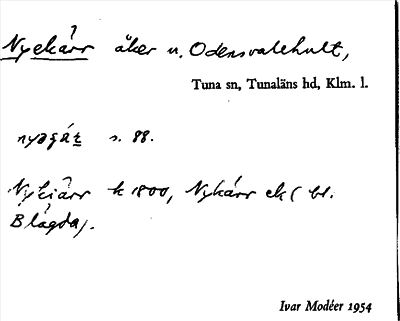 Nyekärr åker u. Odensvalehult,
Tuna sn, Tunaläns hd, Klm. l.
s. 88.
Nykiärr k 1800, Nykärr ek (bl.
Blågda).
Ivar Modéer 1954